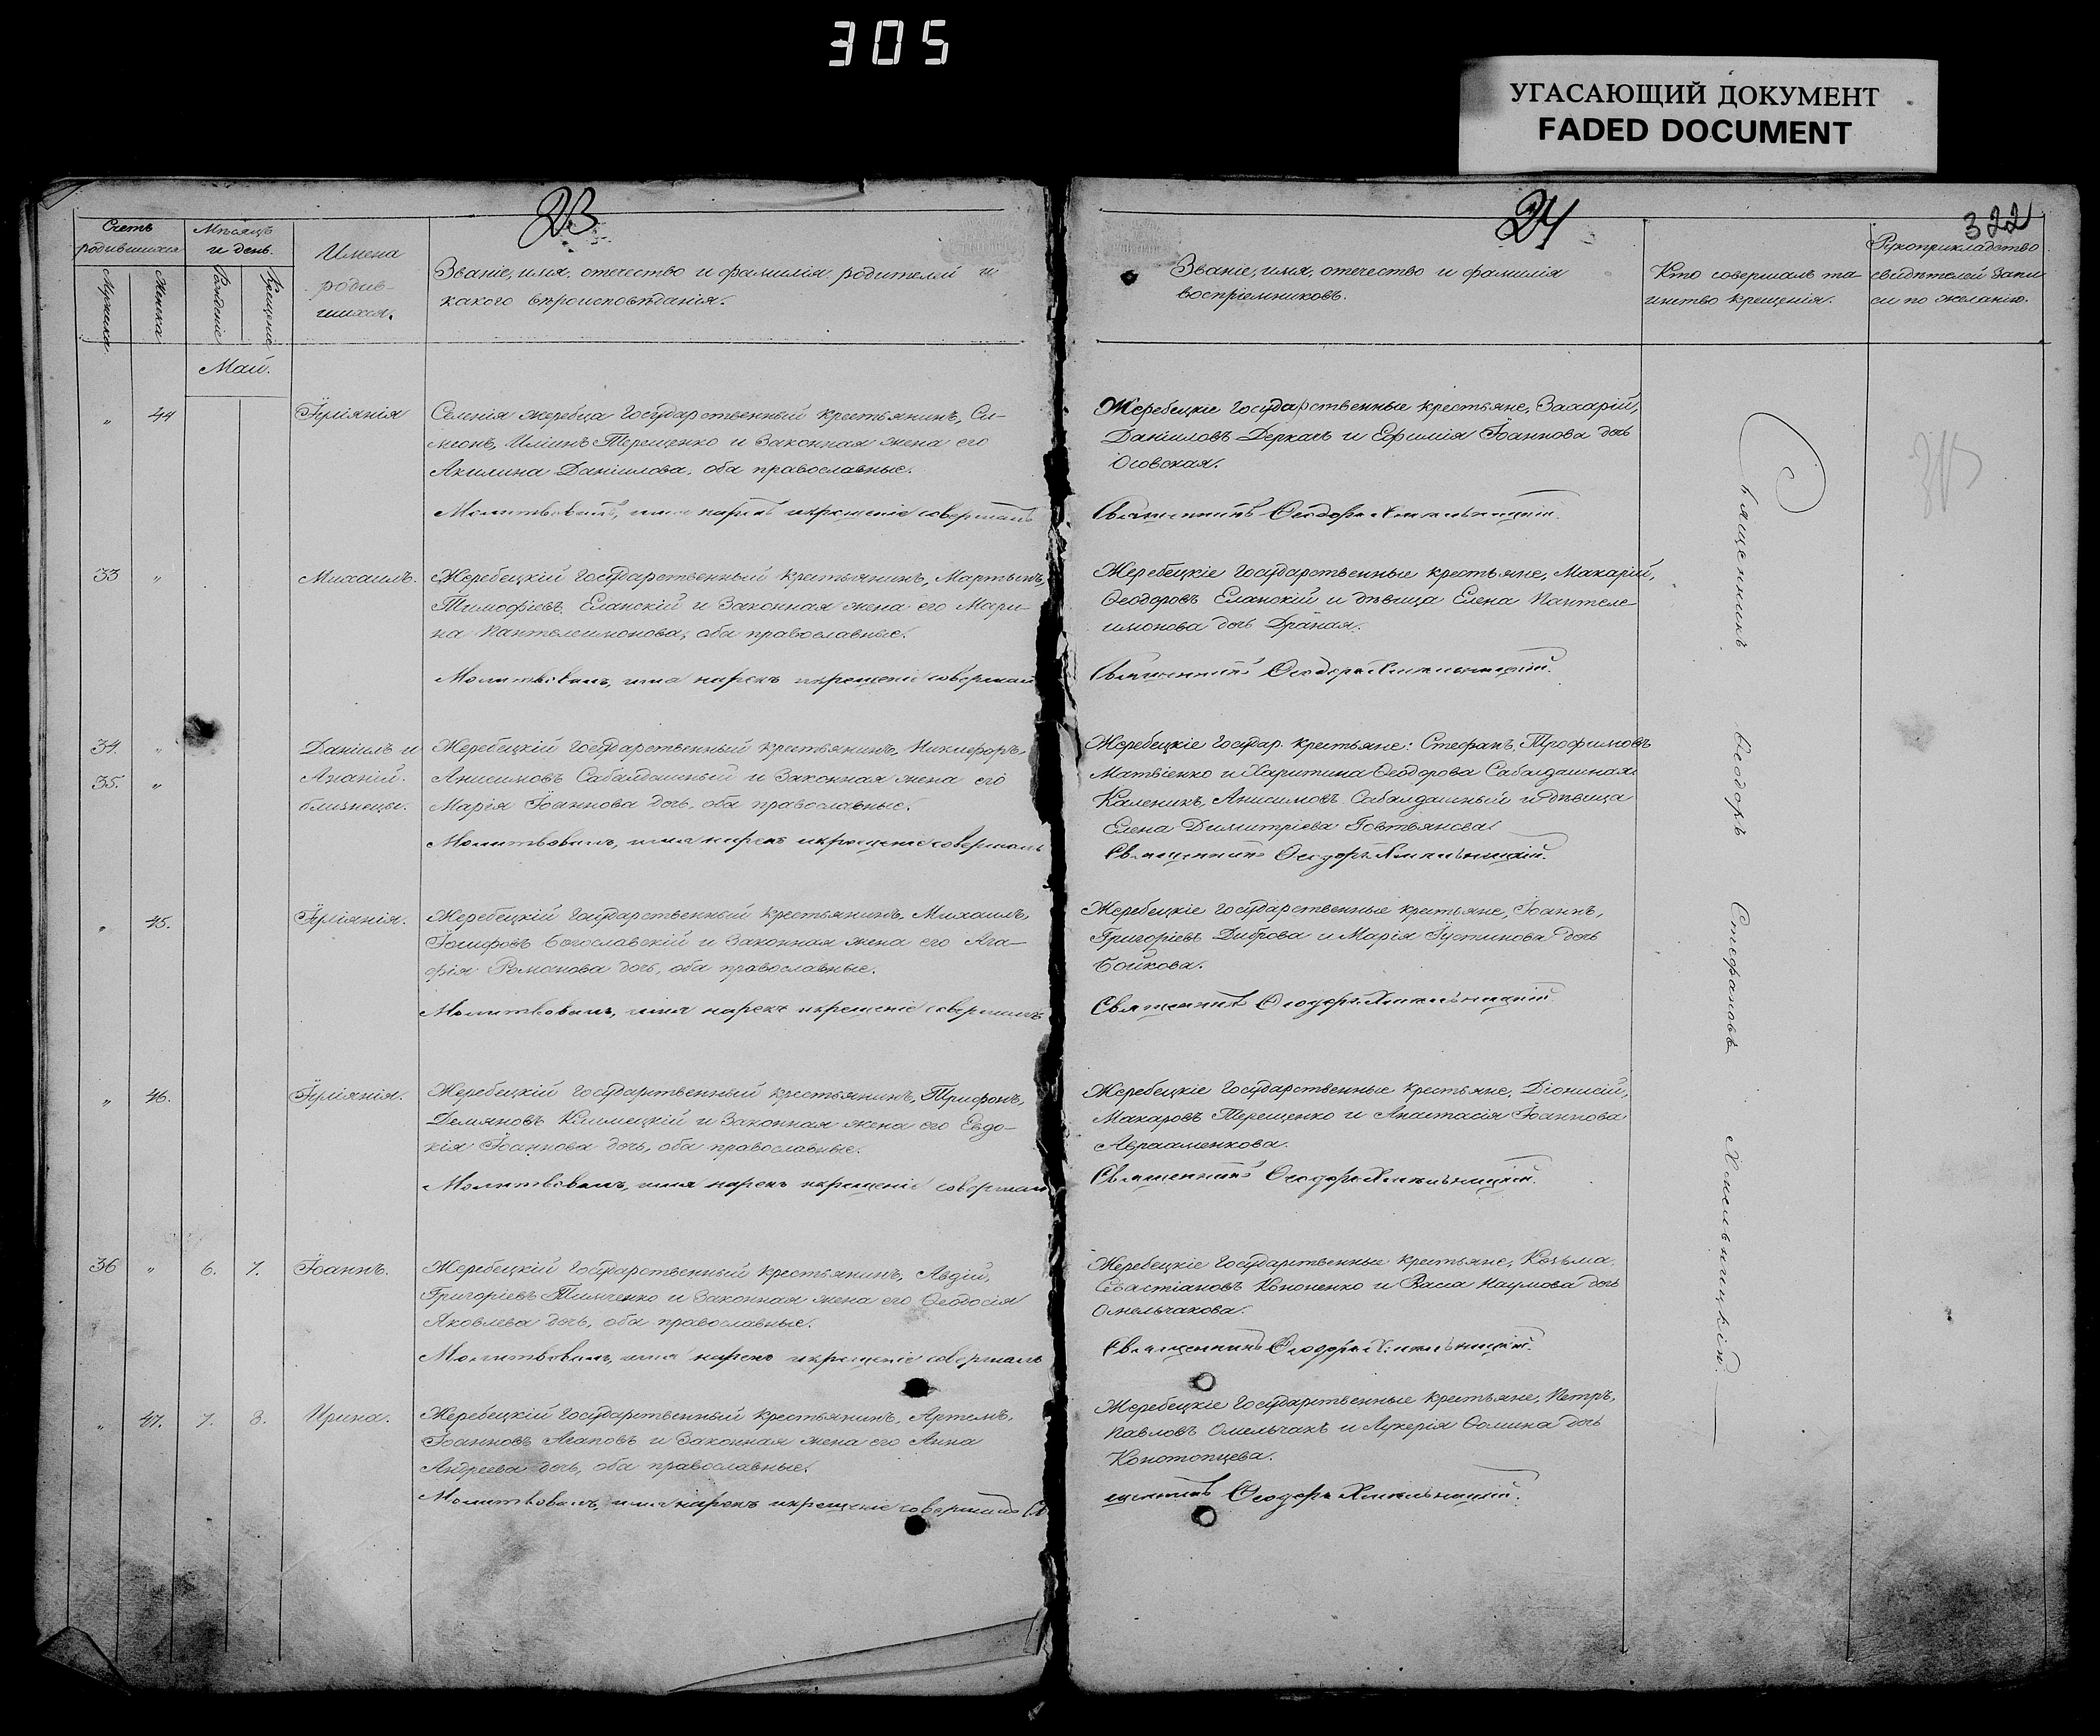 305
УГАСАЮЩИЙ ДОКУМЕНТ
FADED DOCUMENT
23
Счетъ родившихся
Мѣсяцъ и день.
Имена родив-шихся.
Званіе, имя, отечество и фамилія родителей и
какого вѣроисповѣданія.
Мужска
Женска
Рожденіе
Крещеніе
Май.
" 44 Іуліянія
Селенія Жеребца Государственный крестьянинъ, Си-
меонъ, Иліинъ Терещенко и Законная жена его
Акилина Даніилова, оба православные.
Молитвовалъ, имя нарекъ и крещеніе совершалъ
33 " Михаилъ.
Жеребецкій Государственный крестьянинъ, Мартынъ,
Тимофіевъ Еланскій и Законная жена его Мари-
на Пантелеимонова, оба православные.
Молитвовалъ, имя нарекъ и крещеніе совершалъ
34. " Даніилъ и
35. " Ананій.
близнецы.
Жеребецкій Государственный крестьянинъ, Никифоръ,
Анисимовъ Сабалдашный и Законная жена его
Марія Іоаннова дочь, оба православные.
Молитвовалъ, имя нарекъ и крещеніе совершалъ
" 45. Іуліянія.
Жеребецкій Государственный крестьянинъ, Михаилъ,
Іосифовъ Богославскій и Законная жена его Ага-
фія Романова дочь, оба православные.
Молитвовалъ, имя нарекъ и крещеніе совершалъ
" 46. Іуліянія.
Жеребецкій Государственный крестьянинъ, Трифонъ,
Демяновъ Климецкій и Законная жена его Евдо-
кія Іоаннова дочь, оба православные.
Молитвовалъ, имя нарекъ и крещеніе совершалъ
36 " 6. 7. Іоаннъ.
Жеребецкій Государственный крестьянинъ, Авдій,
Григоріевъ Тимченко и Законная жена его Ѳеодосія
Яковлева дочь, оба православные.
Молитвовалъ, имя нарекъ и крещеніе совершалъ
" 47. 7. 8. Ирина.
Жеребецкій Государственный крестьянинъ, Артемъ,
Іоанновъ Агаповъ и Законная жена его Анна
Андреева дочь, оба православные.
Молитвовалъ, имя нарекъ и крещеніе совершалъ Св
24
322
Званіе, имя, отечество и фамилія
воспріемниковъ.
Кто совершалъ та-
инство крещенія.
Рукоприкладство
свидѣтелей запи
си по желанію.
Жеребецкіе Государственные крестьяне, Захарій,
Даніиловъ Деркачъ и Ефимія Іоаннова дочь
Осовская.
Священникъ Ѳеодоръ Хмельницкій.
Жеребецкіе Государственные крестьяне, Макарій,
Ѳеодоровъ Еланскій и дѣвица Елена Пантеле-
имонова дочь Драная.
Священникъ Ѳеодоръ Хмельницкій.
Жеребецкіе Государ. крестьяне: Стефанъ, Трофимовъ
Матвіенко и Харитина Ѳеодорова Сабалдашная
Каленикъ, Анисимовъ Сабалдашный и дѣвица
Елена Димитріева Говтьянова.
Священникъ Ѳеодоръ Хмельницкій.
Жеребецкіе Государственные крестьяне, Іоаннъ,
Григоріевъ Диброва и Марія Іустинова дочь
Бойкова.
Священникъ Ѳеодоръ Хмельницкій.
Жеребецкіе Государственные крестьяне, Діонисій,
Макаровъ Терещенко и Анастасія Іоаннова
Авраменкова.
Священникъ Ѳеодоръ Хмельницкій.
Жеребецкіе Государственные крестьяне, Козьма,
Севастіановъ Кононенко и Васса Наумова дочь
Омельчакова.
Священникъ Ѳеодоръ Хмельницкій.
Жеребецкіе Государственные крестьяне, Петръ,
Павловъ Омельчакъ и Лукерія Ѳомина дочь
Конотопцева.
щенникъ Ѳеодоръ Хмельницкій.
Священникъ Ѳеодоръ Стефановъ Хмельницкій.